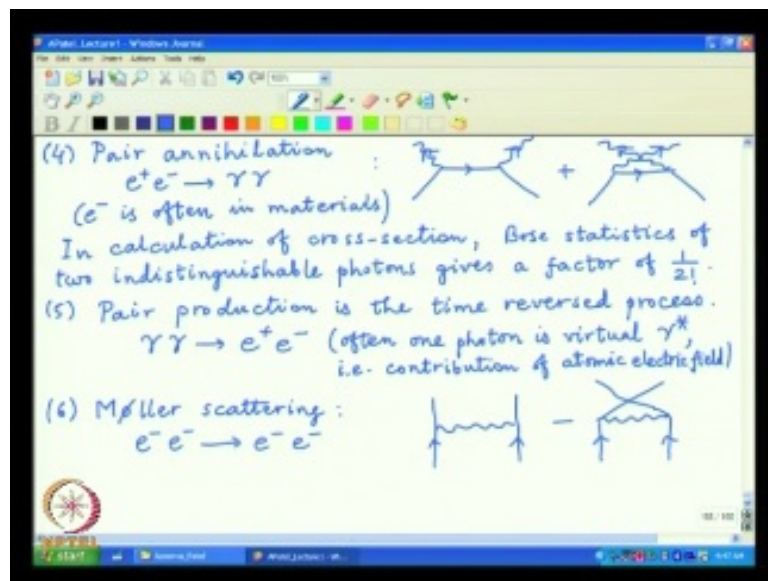 APatel_Lecture1 - Windows Journal
File Edit View Insert Actions Tools Help
(4) Pair annihilation :
e⁺e⁻ → γγ +
(e⁻ is often in materials)
In calculation of cross-section, Bose statistics of
two indistinguishable photons gives a factor of 1/2!.
(5) Pair production is the time reversed process.
γγ → e⁺e⁻ (often one photon is virtual γ*,
i.e. contribution of atomic electric field)
(6) Møller scattering :
e⁻e⁻ → e⁻e⁻ −
NPTEL
start